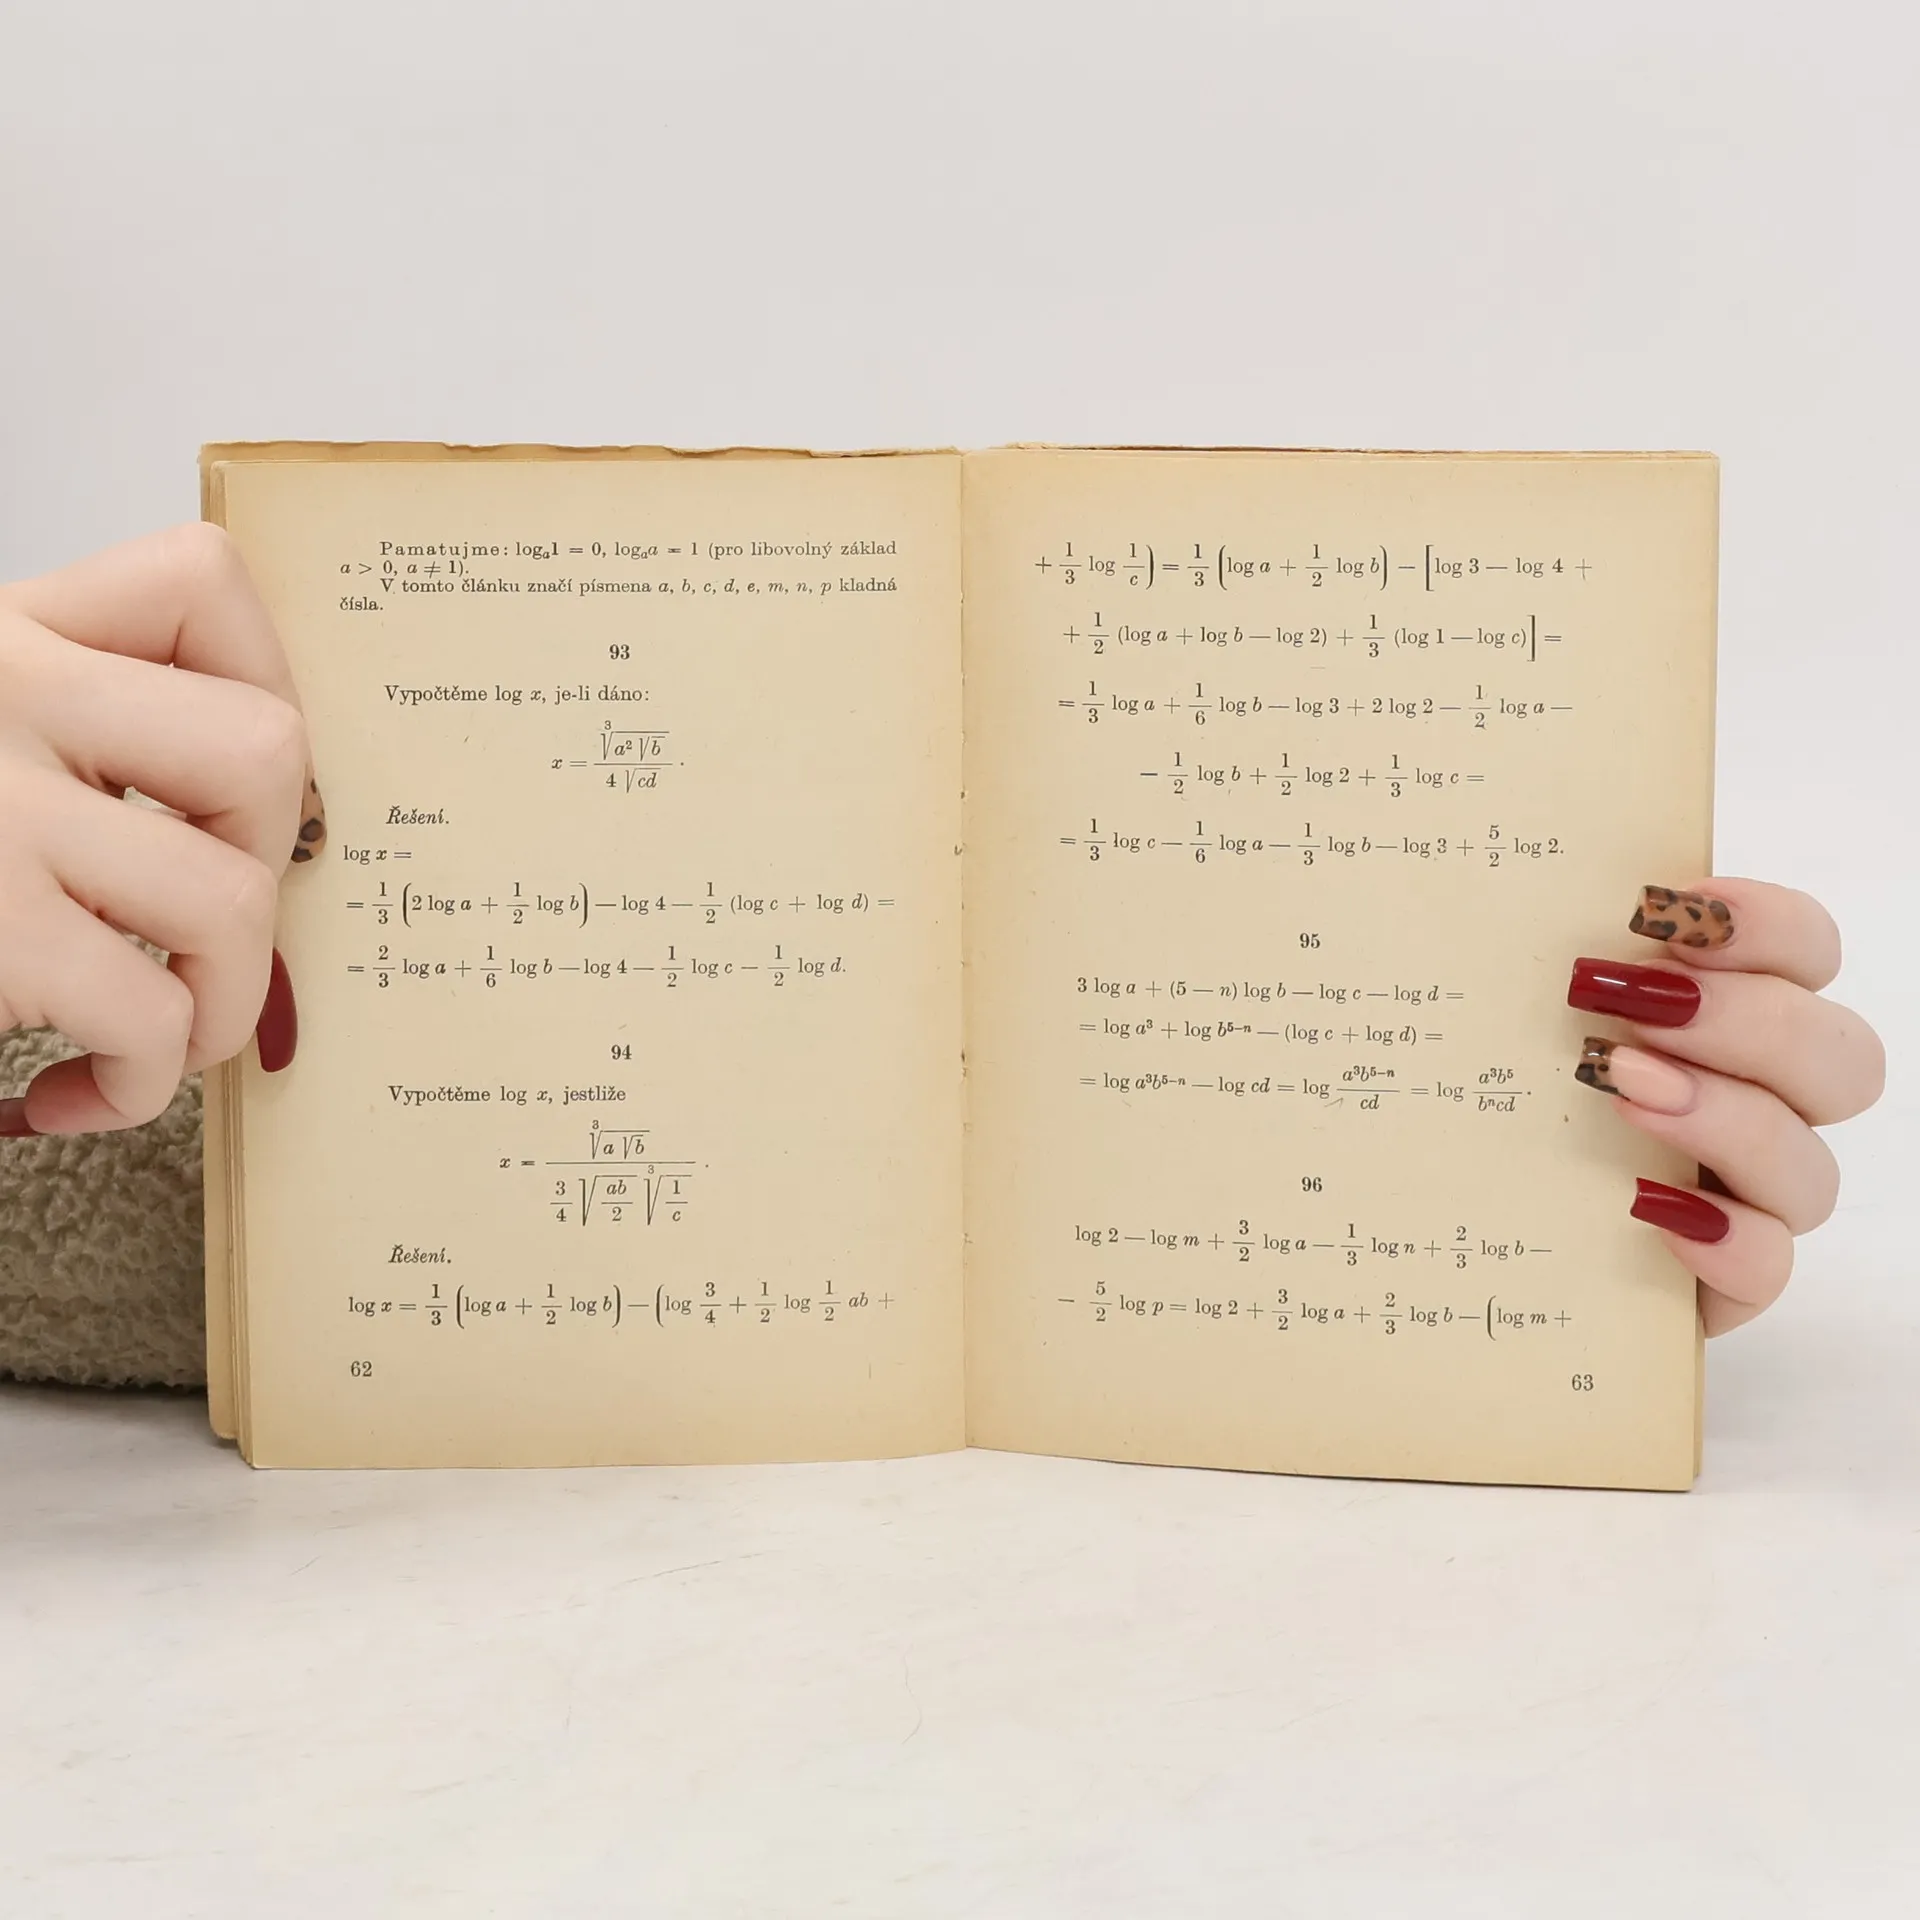 Pamatujme: logₐ1 = 0, logₐa = 1 (pro libovolný základ
a > 0, a ≠ 1).
V tomto článku značí písmena a, b, c, d, e, m, n, p kladná
čísla.
93
Vypočtěme log x, je-li dáno:
x = ∛(a² √b) / (4 √(cd)) .
Řešení.
log x =
= 1/3 (2 log a + 1/2 log b) — log 4 — 1/2 (log c + log d) =
= 2/3 log a + 1/6 log b — log 4 — 1/2 log c — 1/2 log d.
94
Vypočtěme log x, jestliže
x = ∛(a √b) / (3/4 √(ab/2) ∛(1/c)) .
Řešení.
log x = 1/3 (log a + 1/2 log b) — (log 3/4 + 1/2 log 1/2 ab +
62
+ 1/3 log 1/c) = 1/3 (log a + 1/2 log b) — [log 3 — log 4 +
+ 1/2 (log a + log b — log 2) + 1/3 (log 1 — log c)] =
= 1/3 log a + 1/6 log b — log 3 + 2 log 2 — 1/2 log a —
— 1/2 log b + 1/2 log 2 + 1/3 log c =
= 1/3 log c — 1/6 log a — 1/3 log b — log 3 + 5/2 log 2.
95
3 log a + (5 — n) log b — log c — log d =
= log a³ + log b⁵⁻ⁿ — (log c + log d) =
= log a³b⁵⁻ⁿ — log cd = log a³b⁵⁻ⁿ/cd = log a³b⁵/bⁿcd .
96
log 2 — log m + 3/2 log a — 1/3 log n + 2/3 log b —
— 5/2 log p = log 2 + 3/2 log a + 2/3 log b — (log m +
63